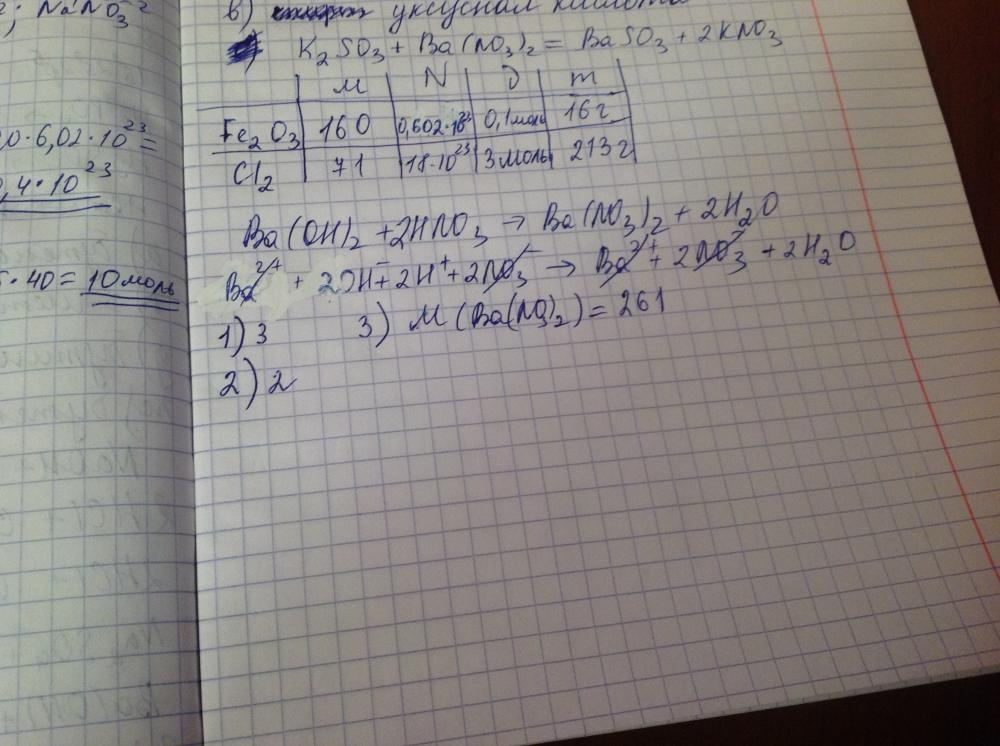 2; NaNO₃
0·6,02·10²³=
,4·10²³
·40=10моль
в) уксусная кислота
K₂SO₃+Ba(NO₃)₂=BaSO₃+2KNO₃
M N D m
Fe₂O₃ 160 0,602·10²³ 0,1моль 16г
Cl₂ 71 18·10²³ 3моль 213г
Ba(OH)₂+2HNO₃→Ba(NO₃)₂+2H₂O
Ba²⁺+2OH⁻+2H⁺+2NO₃⁻→Ba²⁺+2NO₃⁻+2H₂O
1) 3 3) M(Ba(NO₃)₂)=261
2) 2